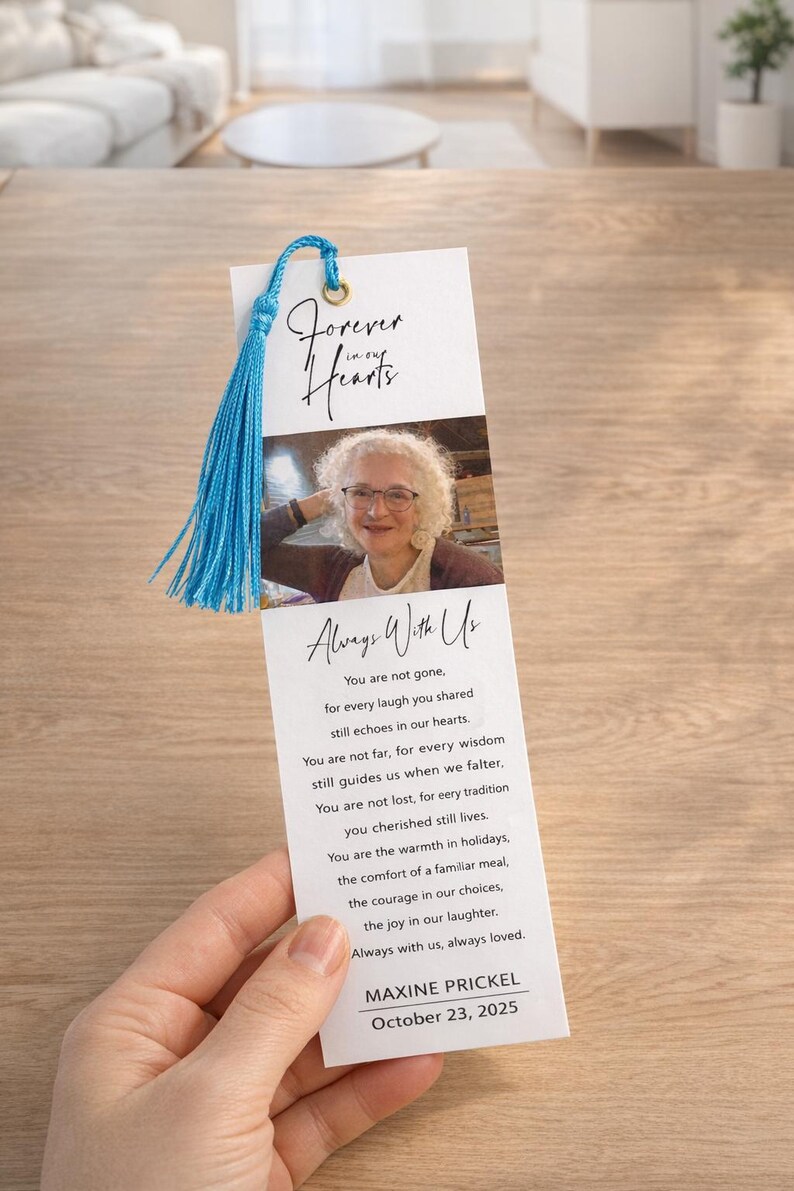 Forever
in our
Hearts
Always With Us
You are not gone,
for every laugh you shared
still echoes in our hearts.
You are not far, for every wisdom
still guides us when we falter,
You are not lost, for eery tradition
you cherished still lives.
You are the warmth in holidays,
the comfort of a familiar meal,
the courage in our choices,
the joy in our laughter.
Always with us, always loved.
MAXINE PRICKEL
October 23, 2025